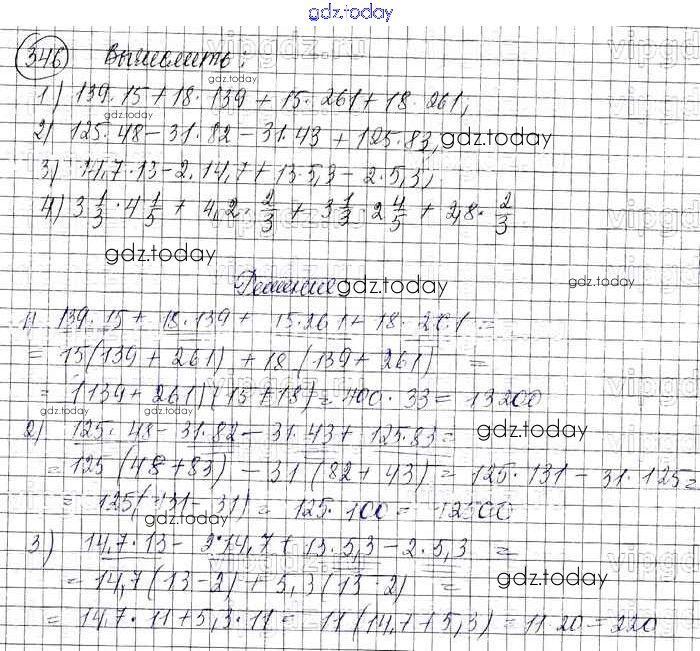 gdz.today
346 Вычислить:
1) 139·15+18·139+15·261+18·261,
2) 125·48-31·82-31·43+125·83, gdz.today
3) 14,7·13-2·14,7+13·5,3-2·5,3;
4) 3 1/3 · 4 1/5 + 4,2 · 2/3 + 3 1/3 · 2 4/5 + 2,8 · 2/3
gdz.today
Решение gdz.today gdz.today
1) 139·15+18·139+15·261+18·261=
=15(139+261)+18(139+261) =
=(139+261)(15+18)=400·33=13200
gdz.today gdz.today
2) 125·48-31·82-31·43+125·83= gdz.today
=125(48+83)-31(82+43)=125·131-31·125=
=125(131-31)=125·100=12500
gdz.today
3) 14,7·13-2·14,7+13·5,3-2·5,3 =
=14,7(13-2)+5,3(13-2) = gdz.today
=14,7·11+5,3·11=11(14,7+5,3)=11·20=220